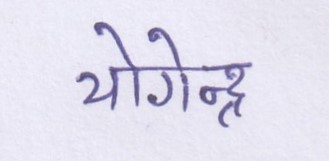 योगेन्द्र